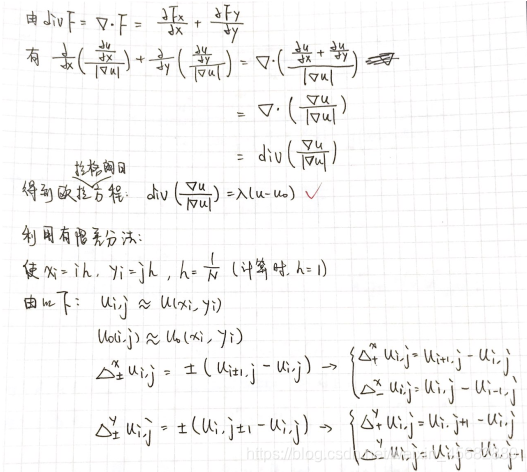 由 divF = ∇·F = ∂Fx/∂x + ∂Fy/∂y
有 ∂/∂x((∂u/∂x)/|∇u|) + ∂/∂y((∂u/∂y)/|∇u|) = ∇·((∂u/∂x + ∂u/∂y)/|∇u|)
= ∇·(∇u/|∇u|)
= div(∇u/|∇u|)
拉格朗日
得到欧拉方程: div(∇u/|∇u|) = λ(u-u₀) ✓
利用有限差分法:
使 xi = ih, yi = jh, h = 1/N (计算时, h=1)
由以下: ui,j ≈ u(xi, yi)
u₀(i,j) ≈ u₀(xi, yi)
Δ±ˣ ui,j = ±(ui±1,j - ui,j) → { Δ₊ˣ ui,j = ui+1,j - ui,j
Δ₋ˣ ui,j = ui,j - ui-1,j
Δ±ʸ ui,j = ±(ui,j±1 - ui,j) → { Δ₊ʸ ui,j = ui,j+1 - ui,j
Δ₋ʸ ui,j = ui,j -